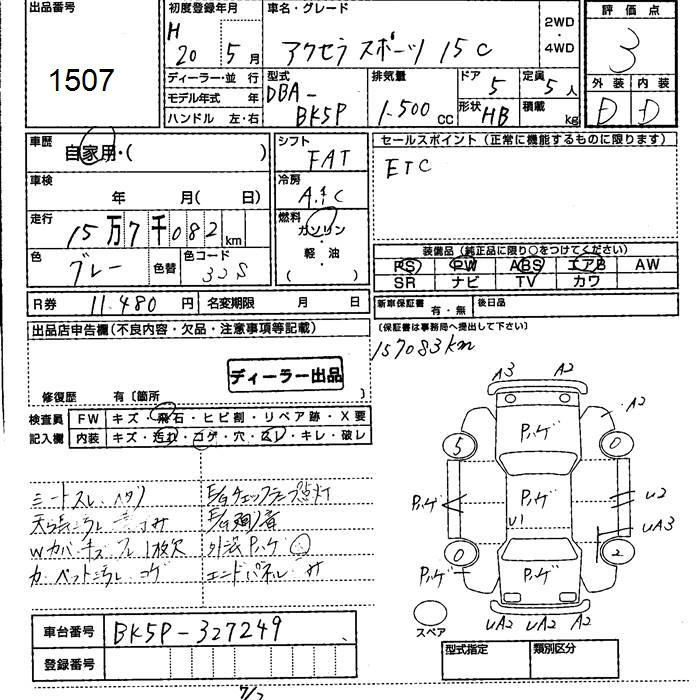 出品番号
1507
初度登録年月
H
20 5月
車名・グレード
アクセラ スポーツ 15C
2WD
・
4WD
評価点
3
外装 内装
D D
ディーラー・並 行
モデル年式 年
ハンドル 左・右
型式
DBA-
BK5P
排気量
1.500 cc
ドア
5
形状 HB
定員
5人
積載
kg
車歴
自家用・( )
車検
年 月( 日)
走行
15万7千082 km
色
グレー
色替
色コード
32S
シフト
FAT
冷房
A/C
燃料
ガソリン
・
軽油
( )
セールスポイント (正常に機能するものに限ります)
ETC
装備品 (純正品に限り○をつけてください)
PS PW ABS エアB AW
SR ナビ TV カワ
R券 11.480 円
名変期限 月 日
新車保証書
有・無
後日品
(保証書は事務局へ提出して下さい)
157083km
出品店申告欄 (不良内容・欠品・注意事項等記載)
ディーラー出品
修復歴 有〔箇所 〕
検査員
記入欄
FW キズ・飛石・ヒビ割・リペア跡・X要
内装 キズ・汚れ・コゲ・穴・スレ・キレ・破レ
シートスレ
E/Gチェックランプ点灯
天張
E/G
Wカバーキズ 1枚欠
外装Pハゲ
カーペット コゲ
エンドパネル
A3 A2
A2
Pハゲ
5 0
Pハゲ Pハゲ U2
U1
UA3
0 2
Pハゲ Pハゲ
スペア
UA2 UA2 UA2
車台番号 BK5P-327249
登録番号
型式指定 類別区分
7/2